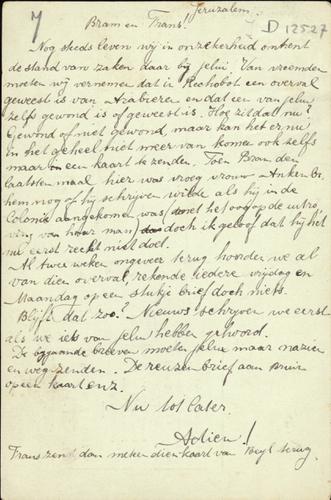 Jeruzalem,
D 12527
Bram en Frans!
Nog steeds leven wy in onzekerheid omtrent
de stand van zaken daar by jelui. Van vreemden
moeten wy vernemen dat in Rechobot een overval
geweest is van Arabieren en dat een van jelui
zelfs gewond is of geweest is. Hoe zit dat nu!
Gewond of niet gewond, maar kan het er nu
in het geheel niet meer van komen ook zelfs
maar een kaart te zenden. Toen Bram den
laatsten maal hier was vroeg vrouw Anken
hem nog of hy schrijven wilde als hy in de
Colonie aangekomen was (met het oog op de
van haar man) doch ik geloof dat hy het
nu eerst recht niet doet.
Al twee weken ongeveer terug hoorden we al
van dien overval, rekende iedere vrijdag en
Maandag op een stukje brief doch niets.
Blijft dat zoo! Nieuws schryven we eerst
als we iets van jelui hebben gehoord.
De bygaande brieven moeten jelui maar nazien
en weg zenden. De reuzen brief aan Bruin
op een kaart enz.
Nu tot later,
Adieu!
Frans zend dan meteen die kaart van terug.